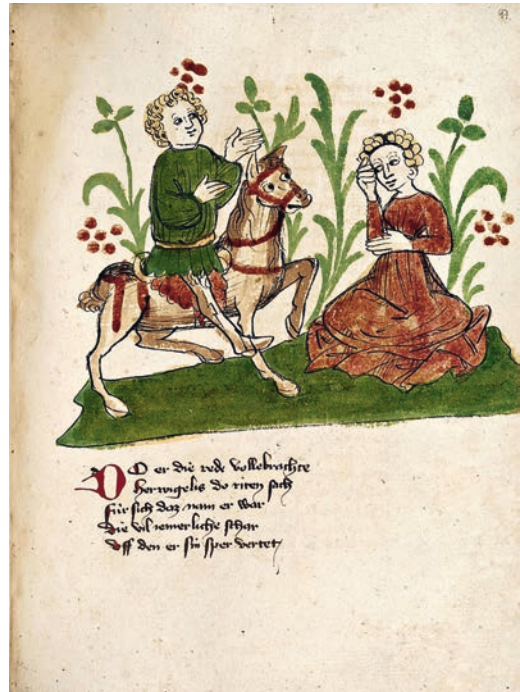 DO er die rede vollebrachte
Herwigelis do riten sach
für sich daz nam er war
Die vil iemerliche schar
Vff den er sin sper vertet